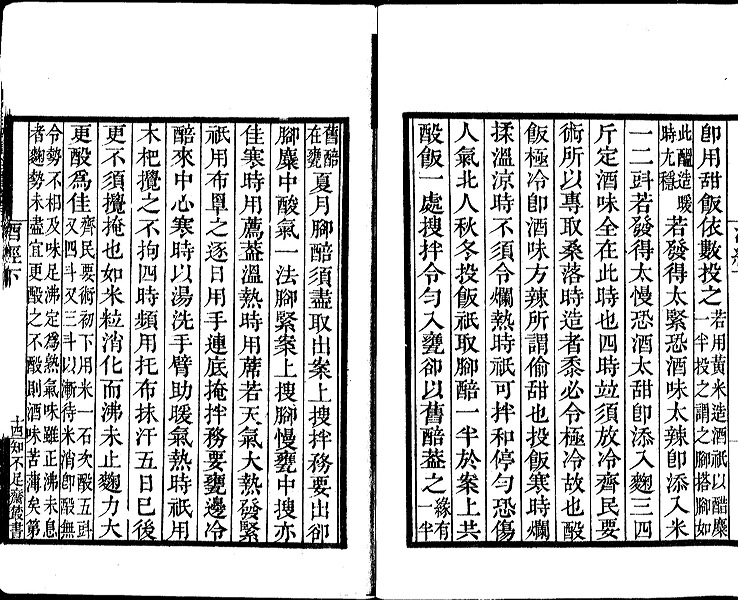 即用甜飯依數投之若用黃米造酒祇以酷麋一半投之謂之腳搭腳如
此醞造暖時尤穩若發得太緊恐酒味太辣即添入米
一二㪷若發得太慢恐酒太甜即添入麴三四
斤定酒味全在此時也四時並須放冷齊民要
術所以專取桑落時造者黍必令極冷故也酘
飯極冷即酒味方辣所謂偷甜也投飯寒時爛
揉溫涼時不須令爛熱時祇可拌和停勻恐傷
人氣北人秋冬投飯祇取腳醅一半於案上共
酘飯一處搜拌令勻入甕卻以舊醅葢之緣有一半
舊醅在甕夏月腳醅須盡取出案上搜拌務要出卻
腳麋中酸氣一法腳緊案上搜腳慢甕中搜亦
佳寒時用薦葢溫熱時用蓆若天氣大熱發緊
祇用布罩之逐日用手連底掩拌務要甕邊冷
醅來中心寒時以湯洗手臂助暖氣熱時祇用
木杷攪之不拘四時頻用托布抹汗五日已後
更不須攪掩也如米粒消化而沸未止麴力大
更酘為佳齊民要術初下用米一石次酘五㪷又四㪷又三㪷以漸待米消即酘無
令勢不相及味足沸定為熟氣味雖正沸未息者麴勢未盡宜更酘之不酘則酒味苦薄矣第
酒經下
十四
知不足齋叢書